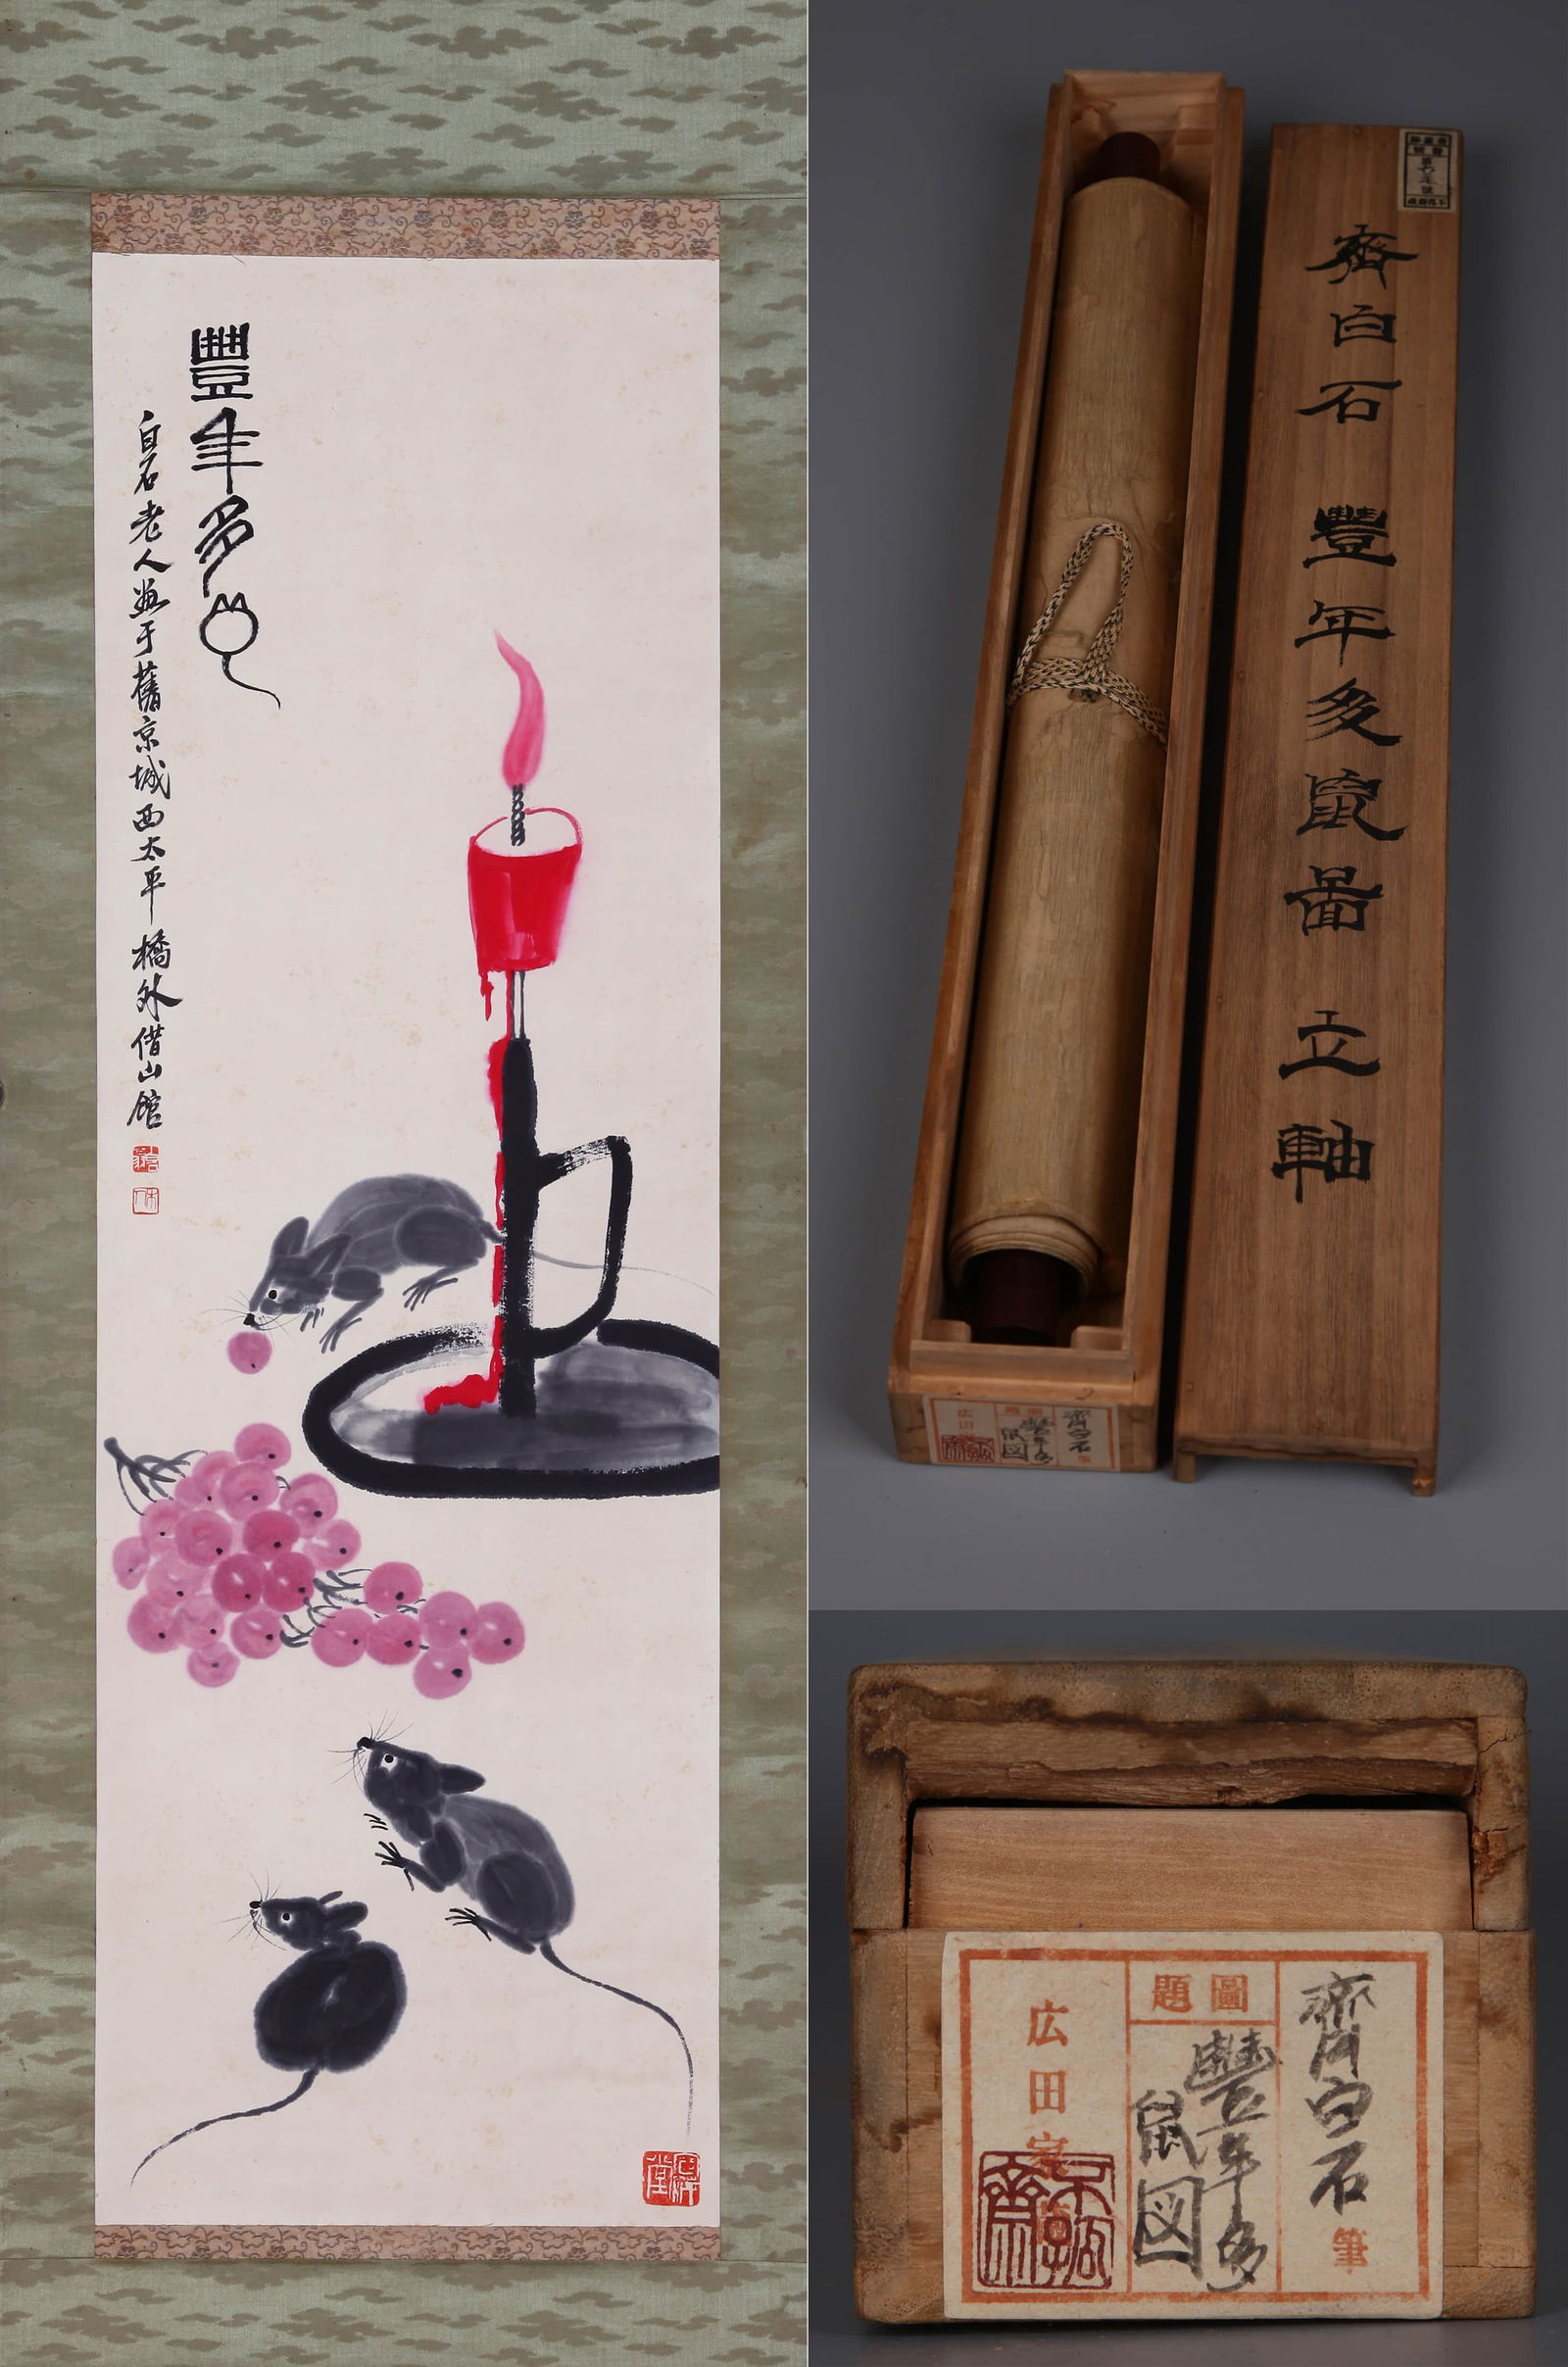 豐年多
白石老人畫于舊京城西太平橋外借山館
齊白石 豐年多鼠圖 立軸
広田
齊白石
豐年多
鼠図
圖題
齊白石筆
豐年多
鼠図
広田